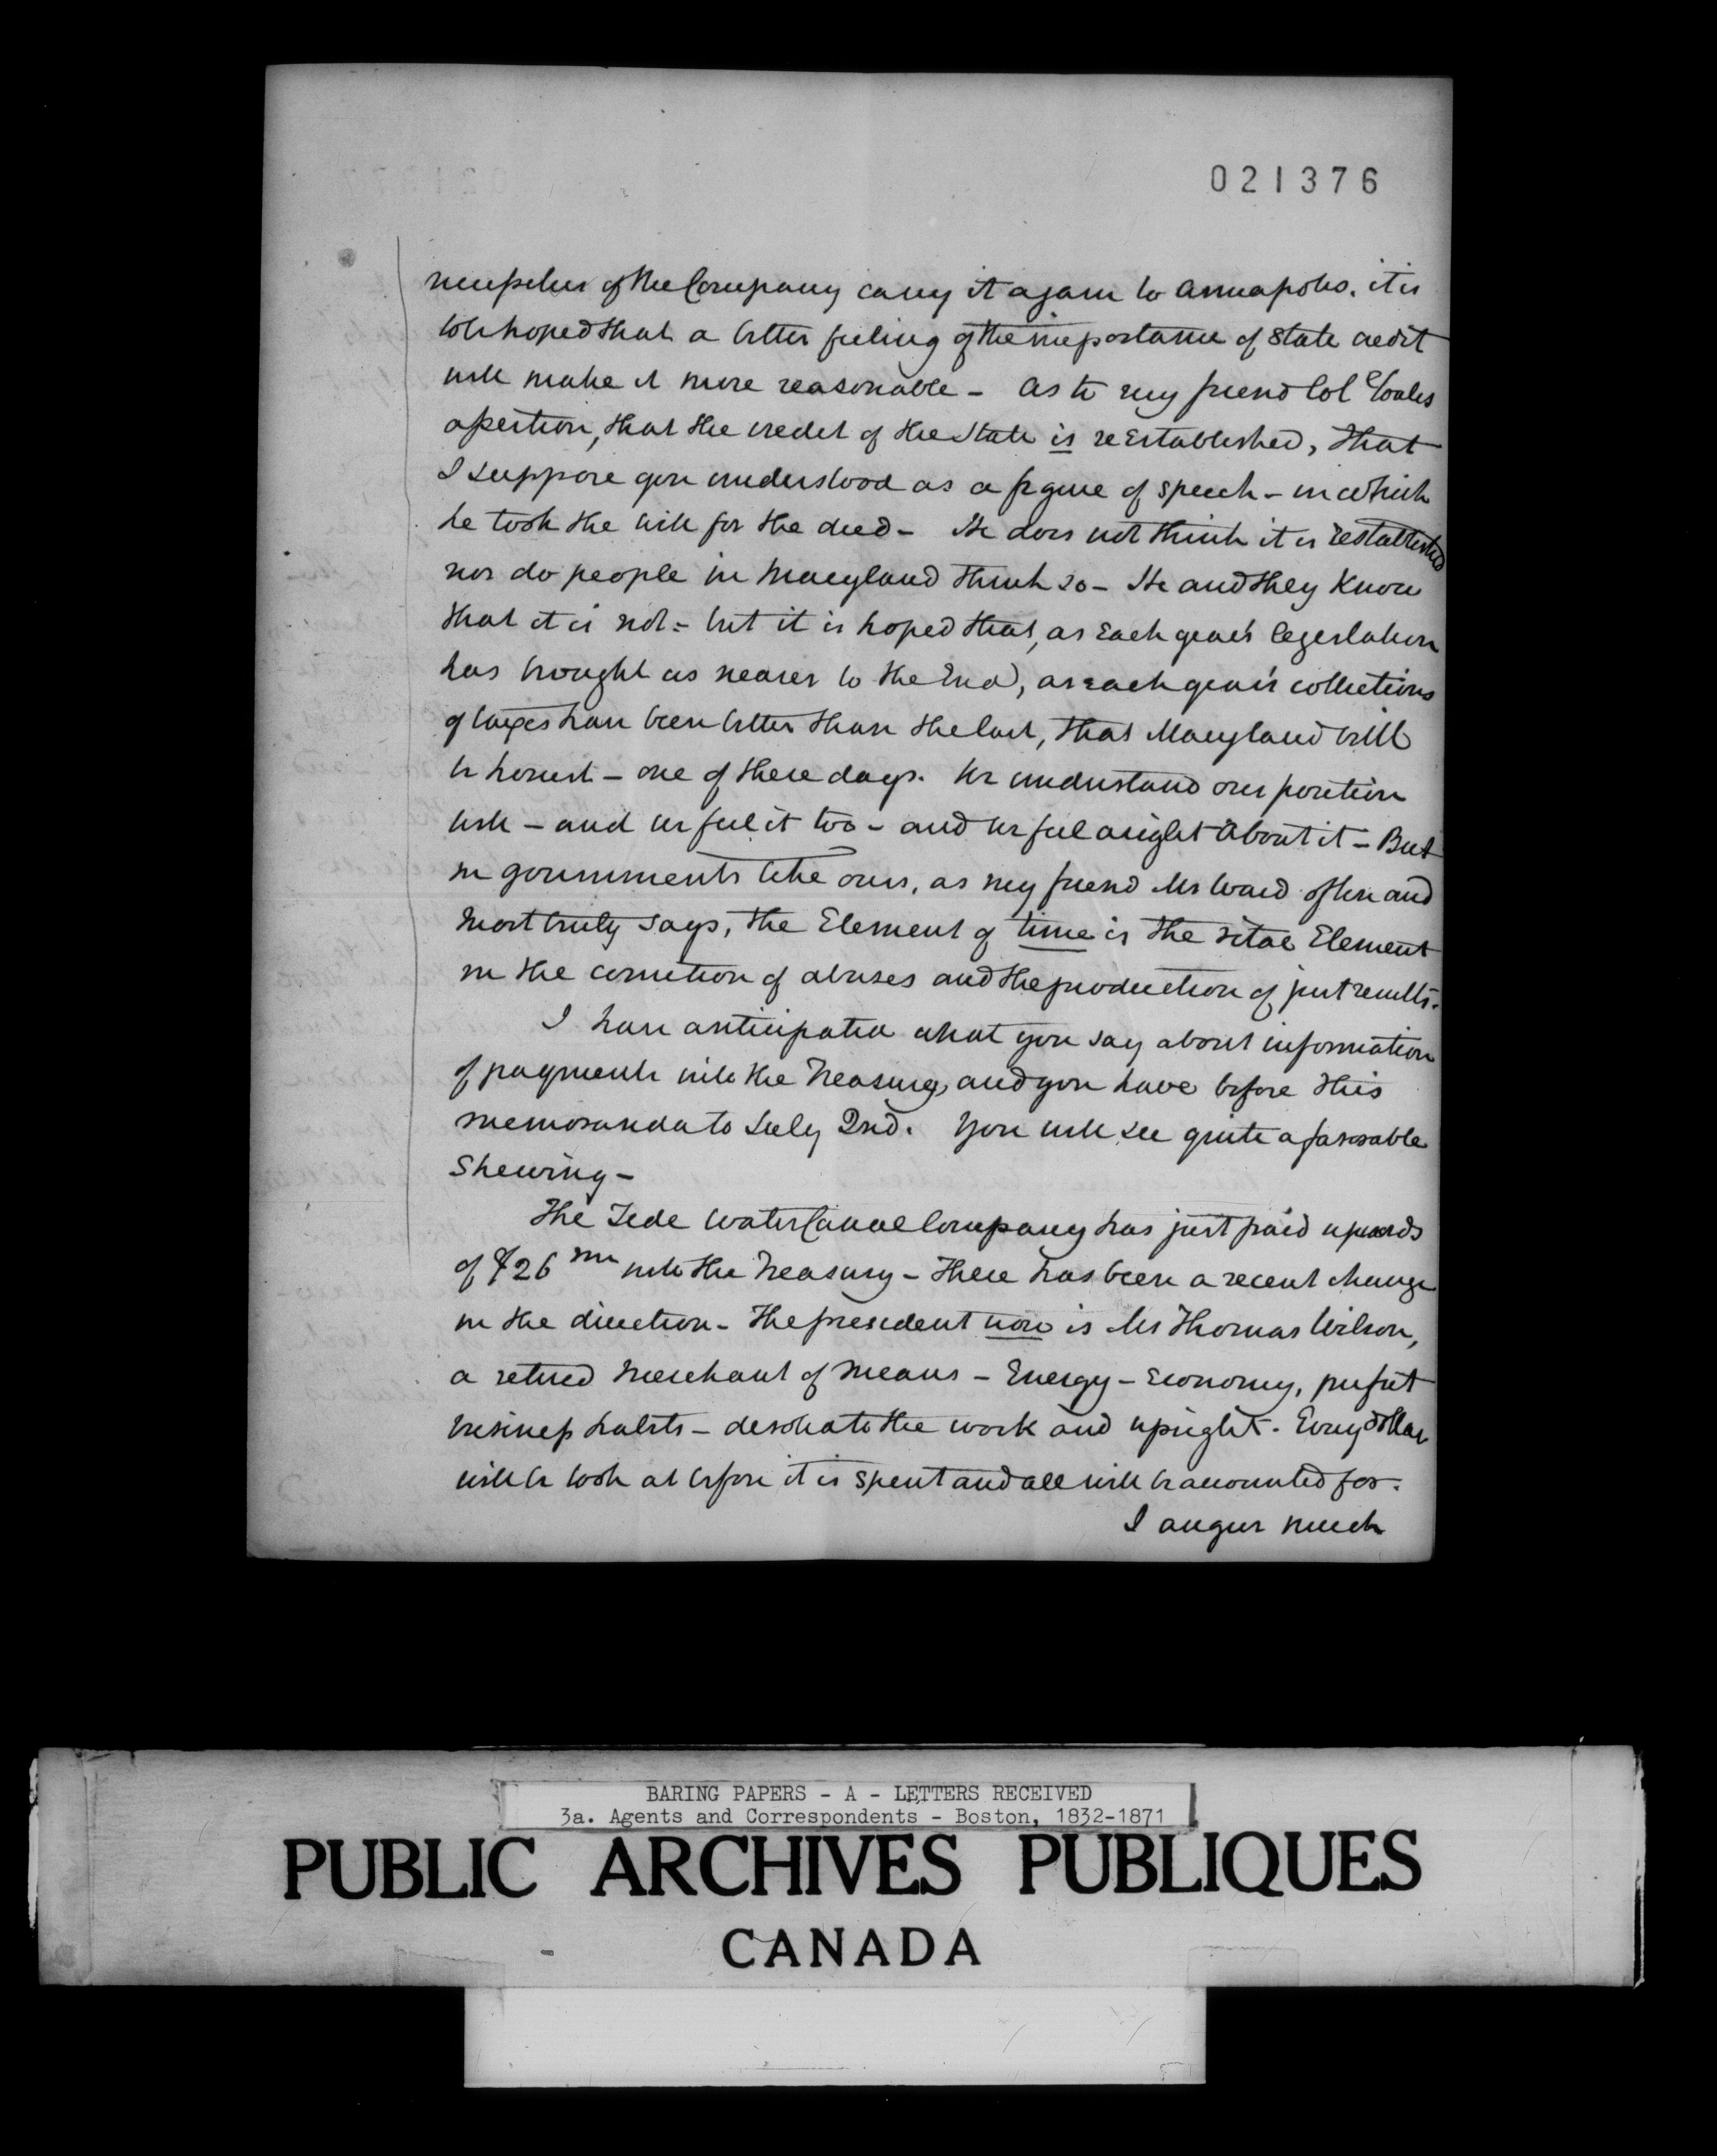 021376
necessities of the Company carry it again to Annapolis. it is
to be hoped that a better feeling of the importance of State credit
will make it more reasonable - As to my friend Col Coales
assertion, that the credit of the State is reestablished, that
I suppose you understood as a figure of speech - in which
he took the will for the deed - He does not think it is reestablished
nor do people in Maryland think so - He and they Know
that it is not - but it is hoped that, as Each year's legislation
has brought us nearer to the End, as each year's collections
of taxes have been better than the last, that Maryland will
be honest - one of these days. We understand our position
well - and we feel it too - and we feel aright about it - But
in governments like ours, as my friend Mr Ward often and
most truly says, the Element of time is the vital Element
in the correction of abuses and the production of just results.
I have anticipated what you say about information
of payments into the Treasury, and you have before this
memoranda to July 2nd. You will see quite a favorable
Shewing -
The Tide Water Canal Company has just paid upwards
of $26 into the Treasury - There has been a recent change
in the direction - The president now is Mr Thomas Wilson,
a retired Merchant of Means - Energy - Economy, perfect
business habits - devoted to the work and upright. Every dollar
will be look at before it is spent and all will be accounted for.
I augur much
BARING PAPERS - A - LETTERS RECEIVED
3a. Agents and Correspondents - Boston, 1832-1871
PUBLIC ARCHIVES PUBLIQUES
CANADA